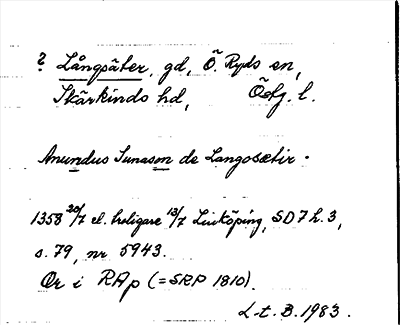 ? Långsäter, gd, Ö. Ryds sn,
Skärkinds hd, Östg. l.
Anundus Sunason de Langosætir.
1358 20/7 el. troligare 13/7 Linköping, SD 7 h. 3,
s. 79, nr 5943.
Or i RAp (= SRP 1810).
L-t. B. 1983.